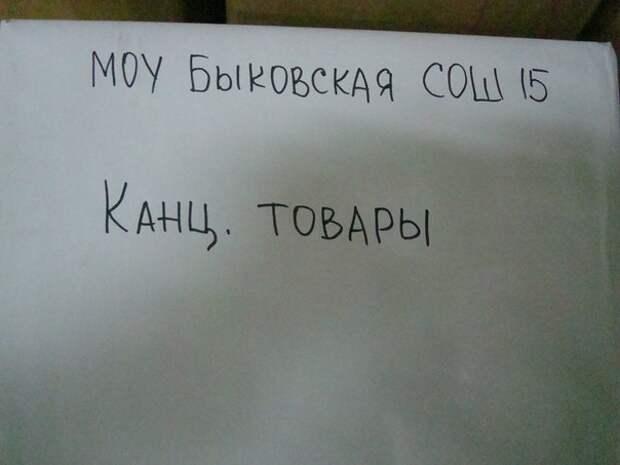 МОУ БЫКОВСКАЯ СОШ 15
КАНЦ. ТОВАРЫ